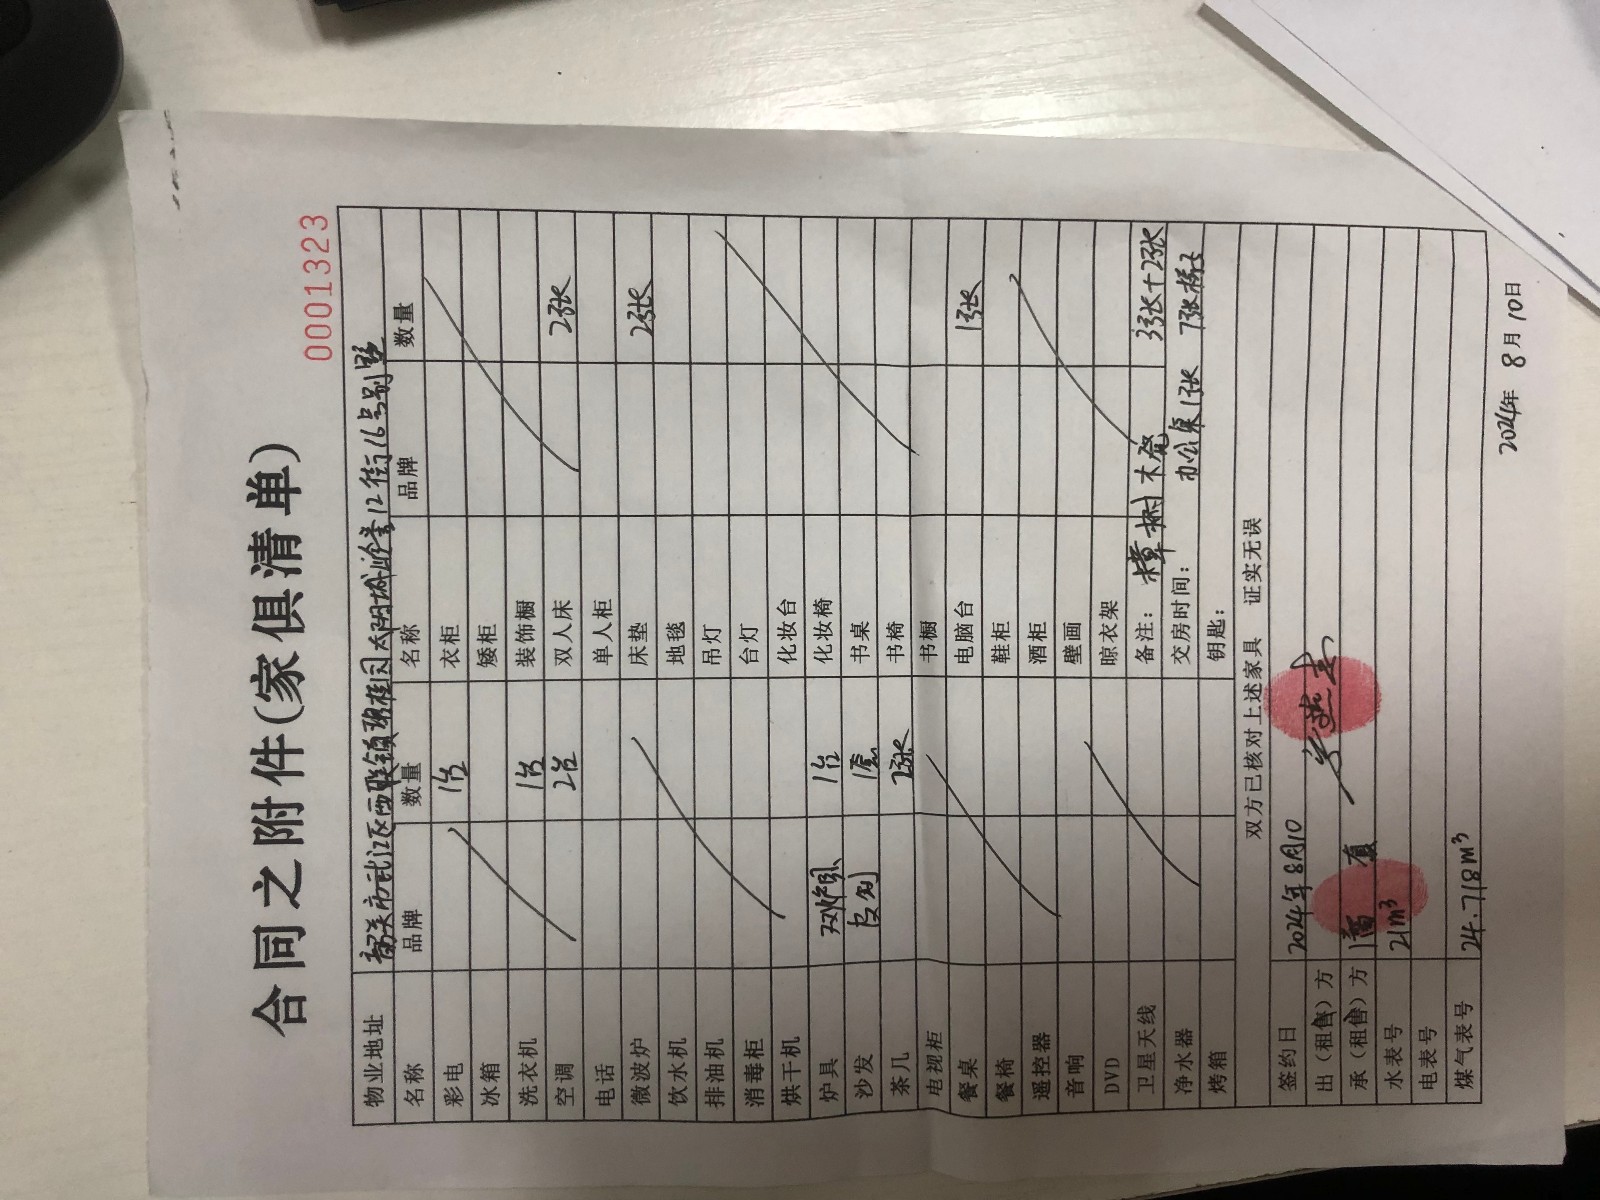 0001323
合同之附件(家俱清单)
物业地址 韶关市武江区西联镇碧桂园太阳城 12街16号别墅
名称 品牌 数量 名称 品牌 数量
彩电 1台 衣柜
冰箱 矮柜
洗衣机 1台 装饰橱
空调 2台 双人床 2张
电话 单人柜
微波炉 床垫 2张
饮水机 地毯
排油机 吊灯
消毒柜 台灯
烘干机 化妆台
炉具 双炉 1台 化妆椅
沙发 1套 书桌
茶几 2张 书椅
电视柜 书橱
餐桌 电脑台 1张
餐椅 鞋柜
遥控器 酒柜
音响 壁画
DVD 晾衣架
卫星天线 备注: 樟树木凳 3张+2张
净水器 交房时间: 办公桌1张 7张椅子
烤箱 钥匙:
双方已核对上述家具 证实无误
签约日 2024年8月10
出(租售)方
承(租售)方
水表号 21m³
电表号
煤气表号 24.718m³
2024年 8月10日